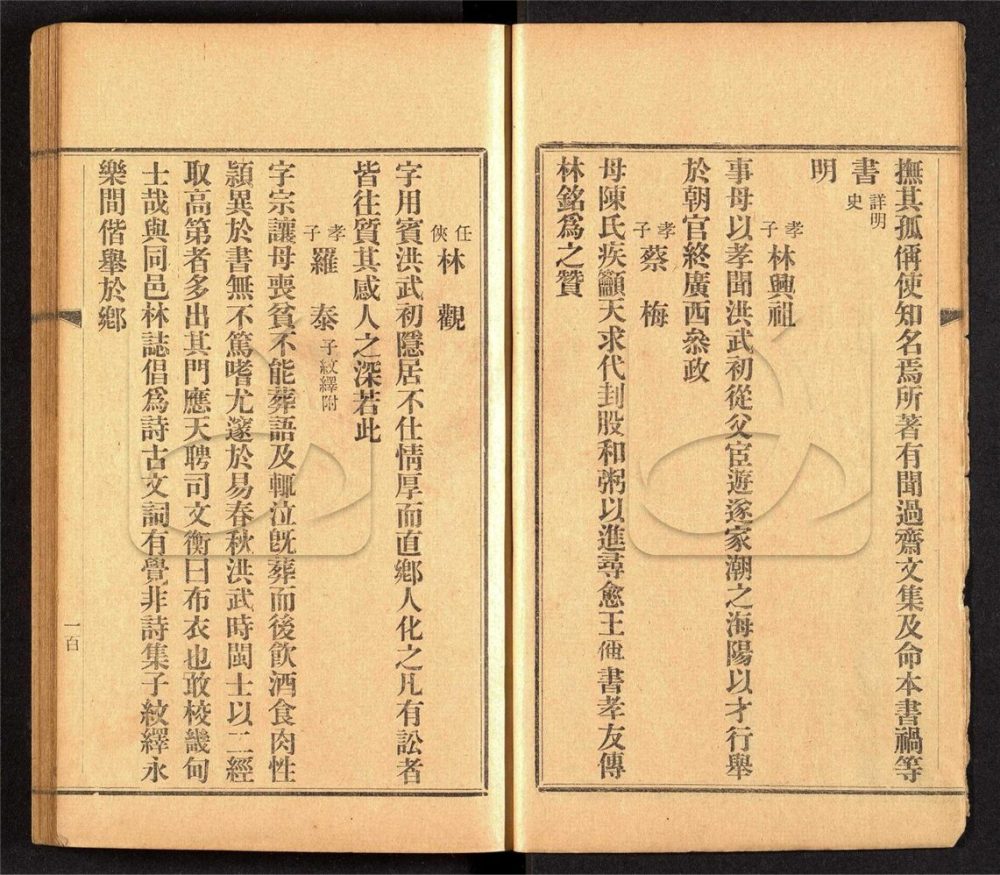 撫其孤偁使知名焉所著有聞過齋文集及命本書禍等
書詳明史
明
孝子林興祖
事母以孝聞洪武初從父宦遊遂家潮之海陽以才行舉
於朝官終廣西叅政
孝子蔡梅
母陳氏疾籲天求代刲股和粥以進尋愈王偁書孝友傳
林銘爲之贊
任俠林觀
字用賓洪武初隱居不仕情厚而直鄉人化之凡有訟者
皆往質其感人之深若此
孝子羅泰子紋繹附
字宗讓母喪貧不能葬語及輒泣旣葬而後飮酒食肉性
頴異於書無不篤嗜尤邃於易春秋洪武時閩士以二經
取高第者多出其門應天聘司文衡曰布衣也敢校畿甸
士哉與同邑林誌倡爲詩古文詞有覺非詩集子紋繹永
樂間偕舉於鄉
一百